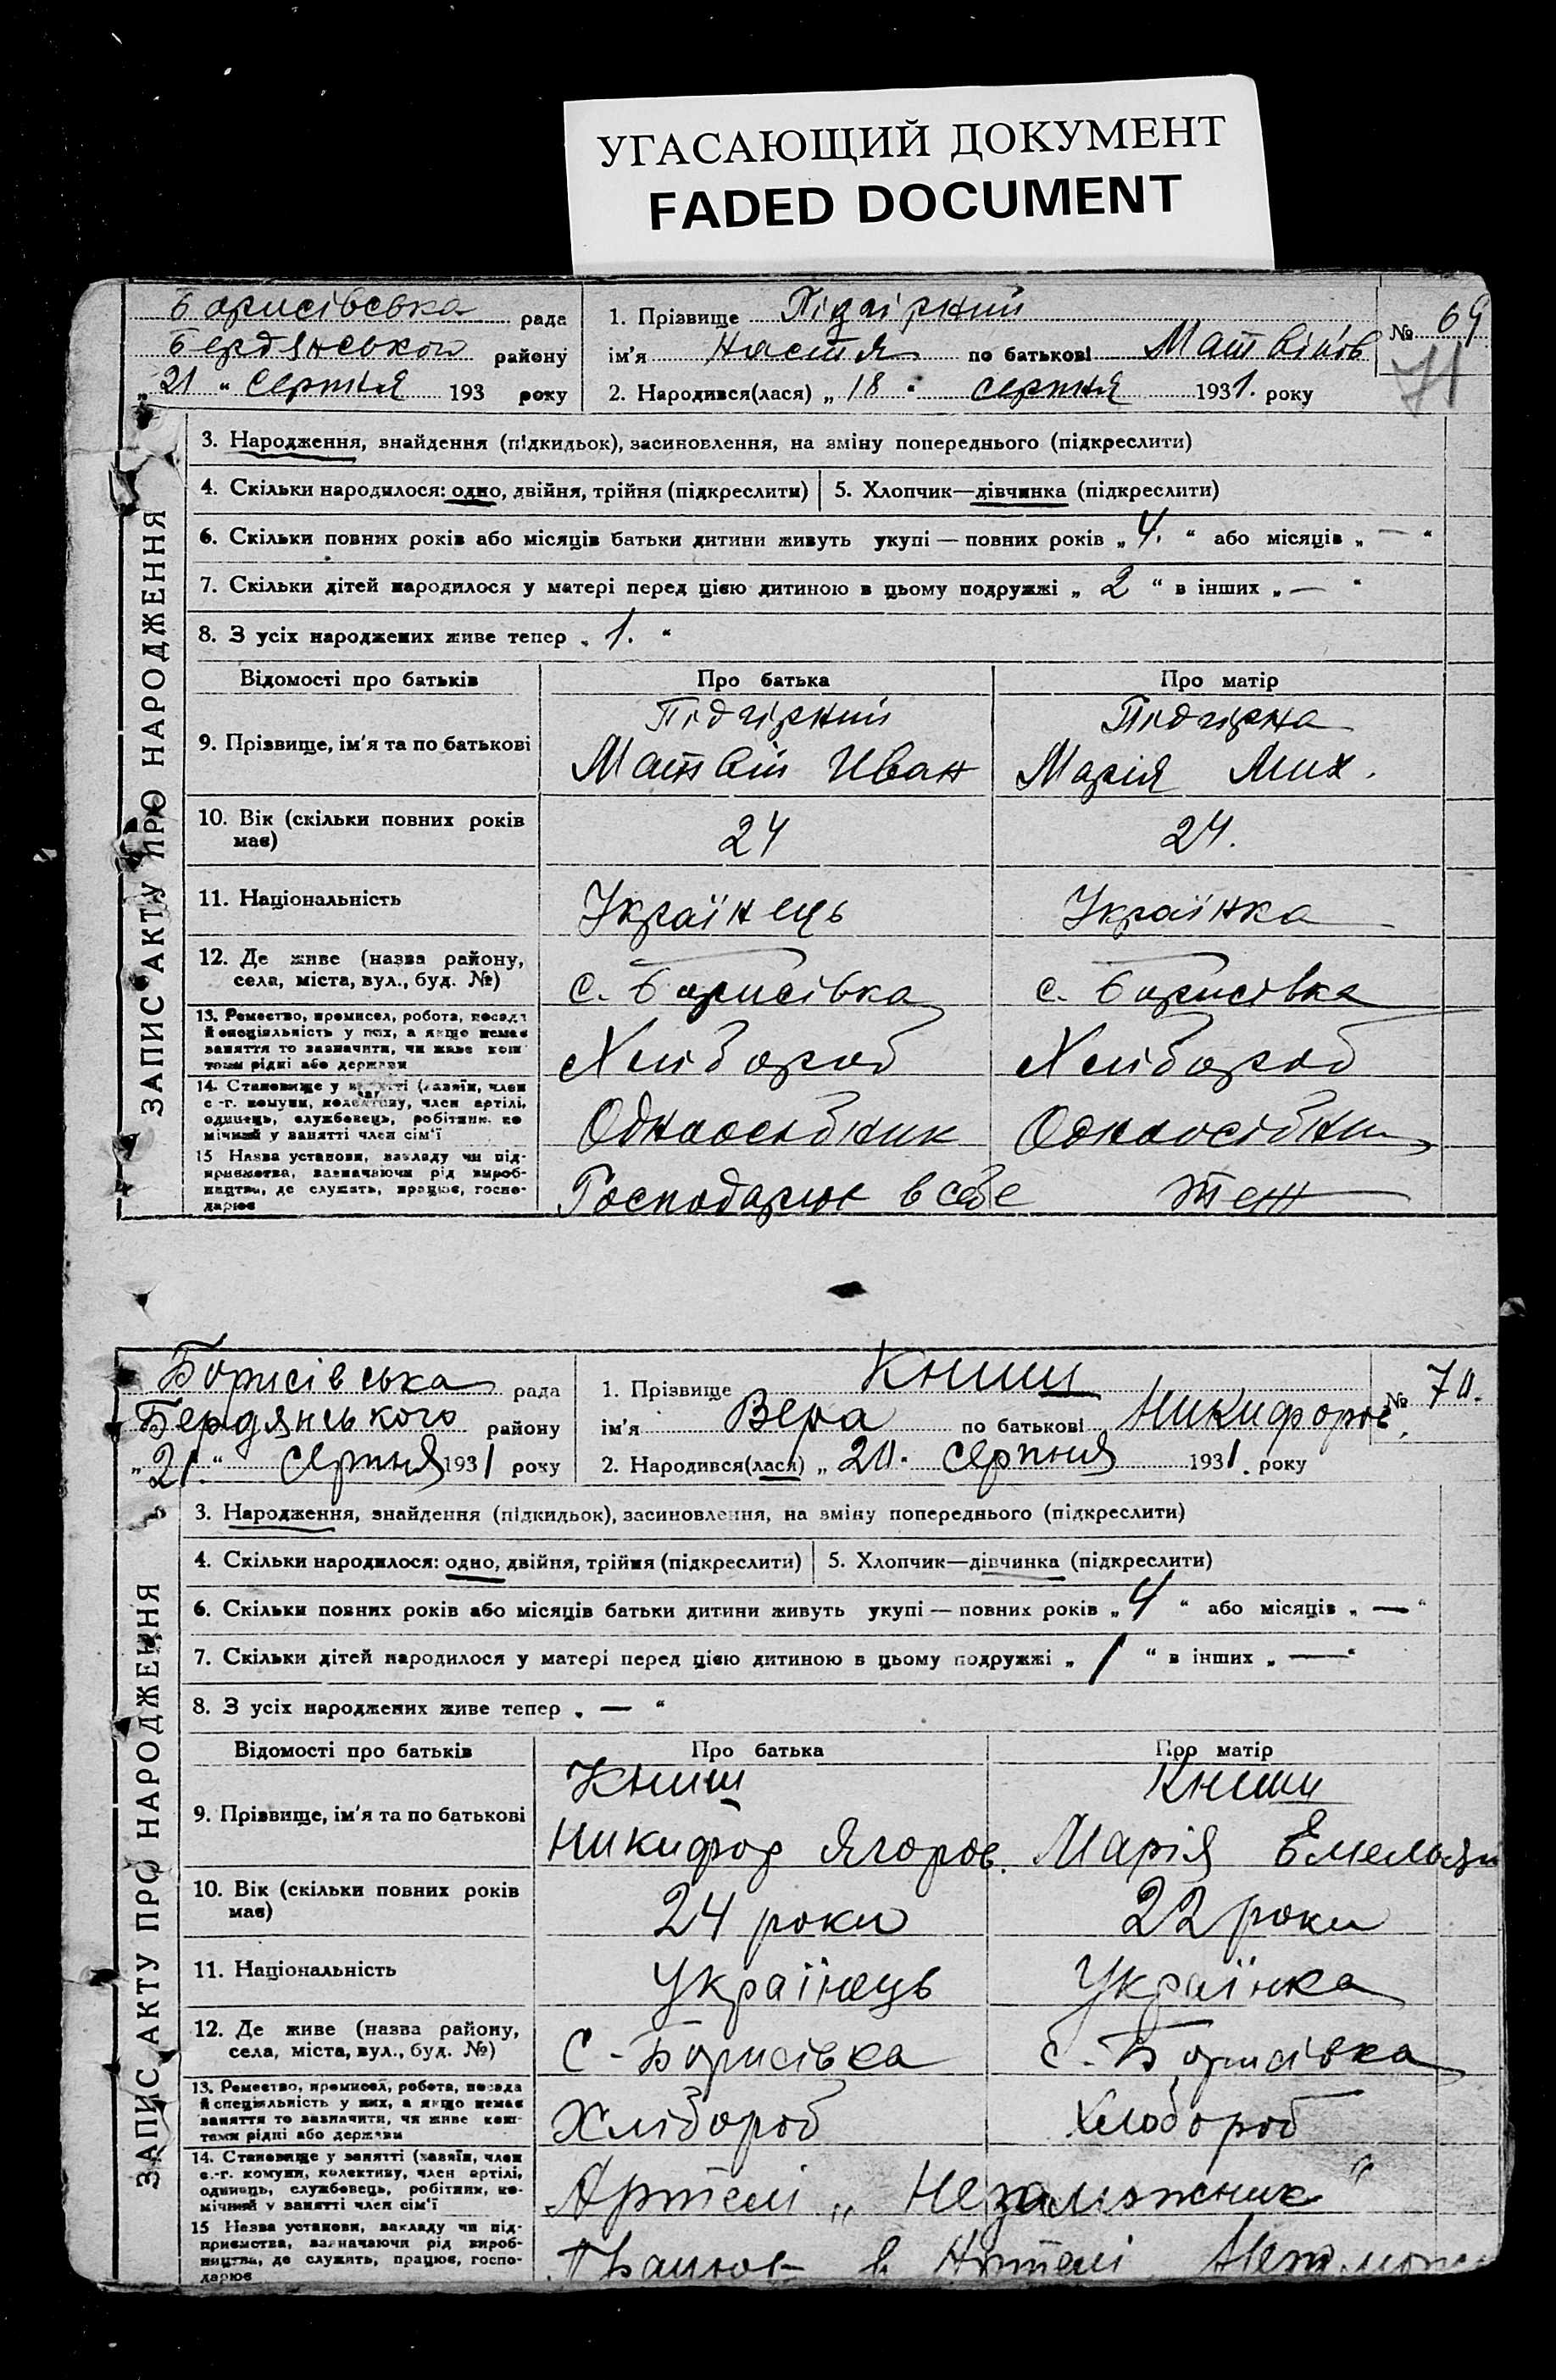 УГАСАЮЩИЙ ДОКУМЕНТ
FADED DOCUMENT
Борисівська рада
Бердянського району
„ 21 “ Серпня 193 року
1. Прізвище Підгірний
ім'я Настя по батькові Матвіїв
2. Народився(лася) „ 18 “ серпня 1931. року
№ 69
71
ЗАПИС АКТУ ПРО НАРОДЖЕННЯ
3. Народження, знайдення (підкидьок), засиновлення, на зміну попереднього (підкреслити)
4. Скільки народилося: одно, двійня, трійня (підкреслити) 5. Хлопчик—дівчинка (підкреслити)
6. Скільки повних років або місяців батьки дитини живуть укупі — повних років „ 4. “ або місяців „ — “
7. Скільки дітей народилося у матері перед цією дитиною в цьому подружжі „ 2 “ в інших „ — “
8. З усіх народжених живе тепер „ 1. “
Відомості про батьків Про батька Про матір
9. Прізвище, ім'я та по батькові
Підгірний Підгірна
Матвій Иван Марія Мих.
10. Вік (скільки повних років має)
24 24.
11. Національність Українець Українка
12. Де живе (назва району,
села, міста, вул., буд. №) с. Борисівка с. Борисівка
13. Ремество, промисел, робота, посада
й спеціяльність у них, а якщо немає
заняття то зазначити, чи живе кош
тами рідні або держави
Хлібороб Хлібороб
14. Становище у занятті (хазяїн, член
с-г. комуни, колективу, член артілі,
одинець, службовець, робітник, по
мічний у занятті член сім'ї
Одноосібник
15 Назва установи, закладу чи під-
приємства, зазначаючи рід вироб-
ництва, де служить, працює, госпо-
дарює
Господарює в себе теж
Борисівська рада
Бердянського району
„ 21. “ Серпня 1931 року
1. Прізвище Книш
ім'я Вера по батькові Никифоров.
2. Народився(лася) „ 20. Серпня 1931. року
№ 70.
ЗАПИС АКТУ ПРО НАРОДЖЕННЯ
3. Народження, знайдення (підкидьок), засиновлення, на зміну попереднього (підкреслити)
4. Скільки народилося: одно, двійня, трійня (підкреслити) 5. Хлопчик—дівчинка (підкреслити)
6. Скільки повних років або місяців батьки дитини живуть укупі — повних років „ 4 “ або місяців „ — “
7. Скільки дітей народилося у матері перед цією дитиною в цьому подружжі „ 1 “ в інших „ — “
8. З усіх народжених живе тепер „ — “
Відомості про батьків Про батька Про матір
9. Прізвище, ім'я та по батькові
Книш Книш
Никифор Ягоров. Марія Емельян
10. Вік (скільки повних років має)
24 роки 22 роки
11. Національність Українець Українка
12. Де живе (назва району,
села, міста, вул., буд. №) С-Борисівка с.-Борисівка
13. Ремество, промисел, робота, посада
й спеціяльність у них, а якщо немає
заняття то зазначити, чи живе кош-
тами рідні або держави
Хлібороб Хлібороб
14. Становище у занятті (хазяїн, член
с.-г. комуни, колективу, член артілі,
одинець, службовець, робітник, по-
мічний у занятті член сім'ї
Артелі „ Незаможник “
15 Назва установи, закладу чи під-
приємства, зазначаючи рід вироб-
ництва, де служить, працює, госпо-
дарює
в Артелі